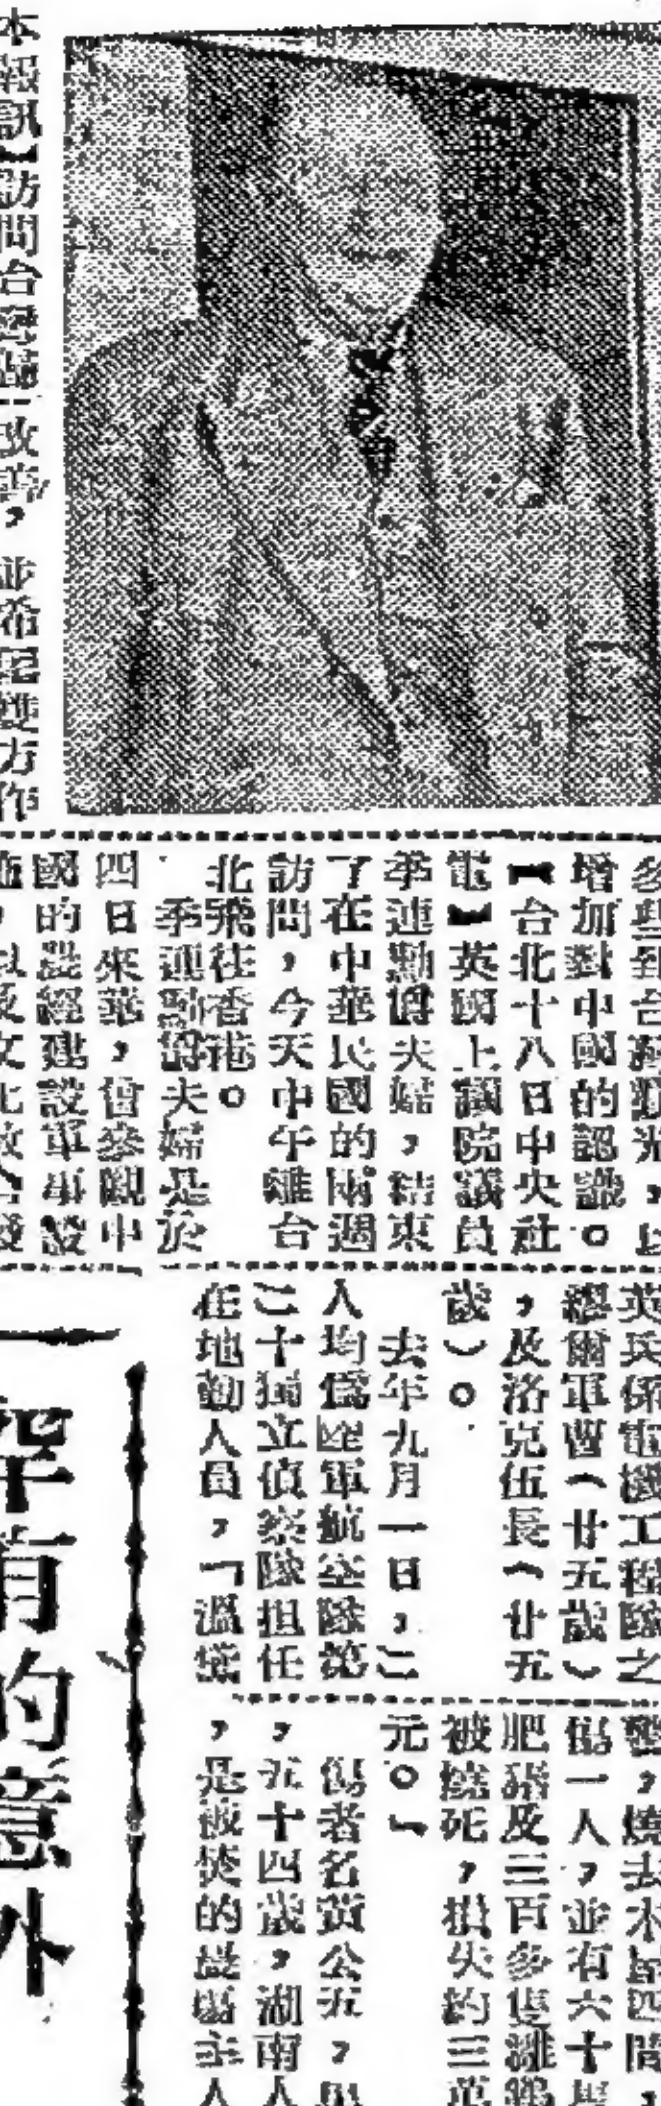 本報訊】訪問台灣歸
改善，並希望雙方作
多些到台灣觀光，以
增加對中國的認識。
【台北十八日中央社
電】英國上議院議員
季連勳爵夫婦，結束
了在中華民國的兩週
訪問，今天中午離台
北飛往香港。
季連勳爵夫婦是於
四日來華，曾參觀中
國的農經建設軍事設
施，以及文化教
英兵係電機工程隊之
爾軍曹（廿五歲）
，及洛克伍長（廿五
歲）。
去年九月一日，二
人均為陸軍航空隊第
二十獨立偵察隊担任
在地勤人員，「溫
燒去木屋四間，
傷一人，並有六十
肥豬及三百多隻雞鴨
被燒死，損失約三萬
元。」
傷者名黃公五，男
，五十四歲，湖南人
，是被焚的農場主人
罕有的意外